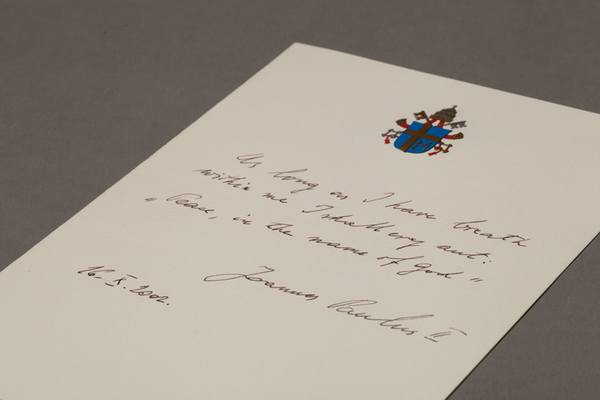 As long as I have breath
within me I shall cry out:
"Peace, in the name of God"
16. X. 2002.
Joannes Paulus II